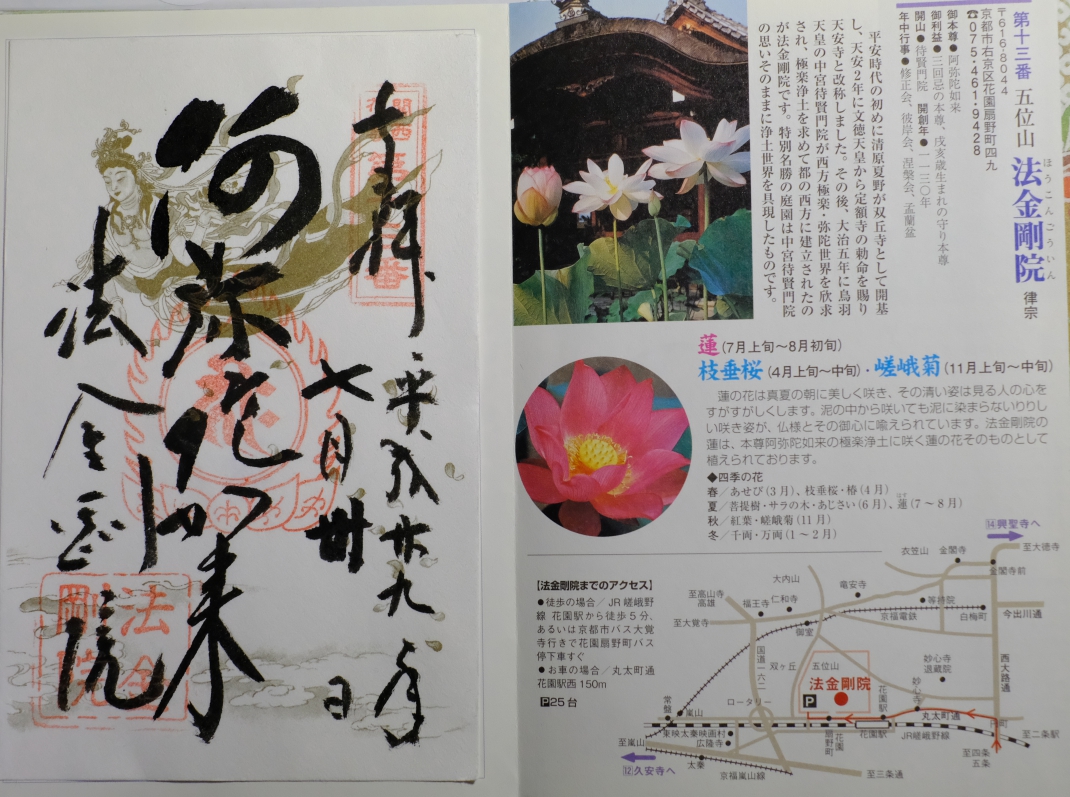 奉拝
平成廿九年
七月卅日
阿弥陀如来
法金剛院
関西
花
法金
剛院
第十三番 五位山 法金剛院 律宗
ほうこんごういん
〒616-8044
京都市右京区花園扇野町四九
☎075・461・9428
御本尊●阿弥陀如来
御利益●三回忌の本尊、戌亥歳生まれの守り本尊
開山●待賢門院 開創年●一一三〇年
年中行事●修正会、彼岸会、涅槃会、盂蘭盆
平安時代の初めに清原夏野が双丘寺として開基
し、天安2年に文徳天皇から定額寺の勅命を賜り
天安寺と改称しました。その後、大治五年に鳥羽
天皇の中宮待賢門院が西方極楽・弥陀世界を欣求
され、極楽浄土を求めて都の西方に建立されたの
が法金剛院です。特別名勝の庭園は中宮待賢門院
の思いそのままに浄土世界を具現したものです。
蓮(7月上旬〜8月初旬)
枝垂桜(4月上旬〜中旬)・嵯峨菊(11月上旬〜中旬)
蓮の花は真夏の朝に美しく咲き、その清い姿は見る人の心を
すがすがしくします。泥の中から咲いても泥に染まらないりりし
い咲き姿が、仏様とその御心に喩えられています。法金剛院の
蓮は、本尊阿弥陀如来の極楽浄土に咲く蓮の花そのものとして
植えられております。
◆四季の花
春/あせび(3月)、枝垂桜・椿(4月)
夏/菩提樹・サラの木・あじさい(6月)、蓮(7〜8月)
はす
秋/紅葉・嵯峨菊(11月)
冬/千両・万両(1〜2月)
【法金剛院までのアクセス】
●徒歩の場合/JR嵯峨野
線 花園駅から徒歩5分、
あるいは京都市バス大覚
寺行きで花園扇野町バス
停下車すぐ
●お車の場合/丸太町通
花園駅西150m
P25台
⑭興聖寺へ
至大徳寺
衣笠山
金閣寺
金閣寺前
大内山
竜安寺
至高山寺
高雄
福王寺
仁和寺
等持院
至大覚寺
京福電鉄
白梅町
今出川通
御室
国道一六二
双ヶ丘
五位山
妙心寺
退蔵院
西大路通
法金剛院
P
花園駅
妙心寺
常盤
嵐山
ロータリー
丸太町通
円町
東映太秦映画村
広隆寺
扇野町
花園
花園駅
JR嵯峨野線
至二条駅
至嵐山
太秦
至四条
五条
⑫久安寺へ
京福嵐山線
至三条通